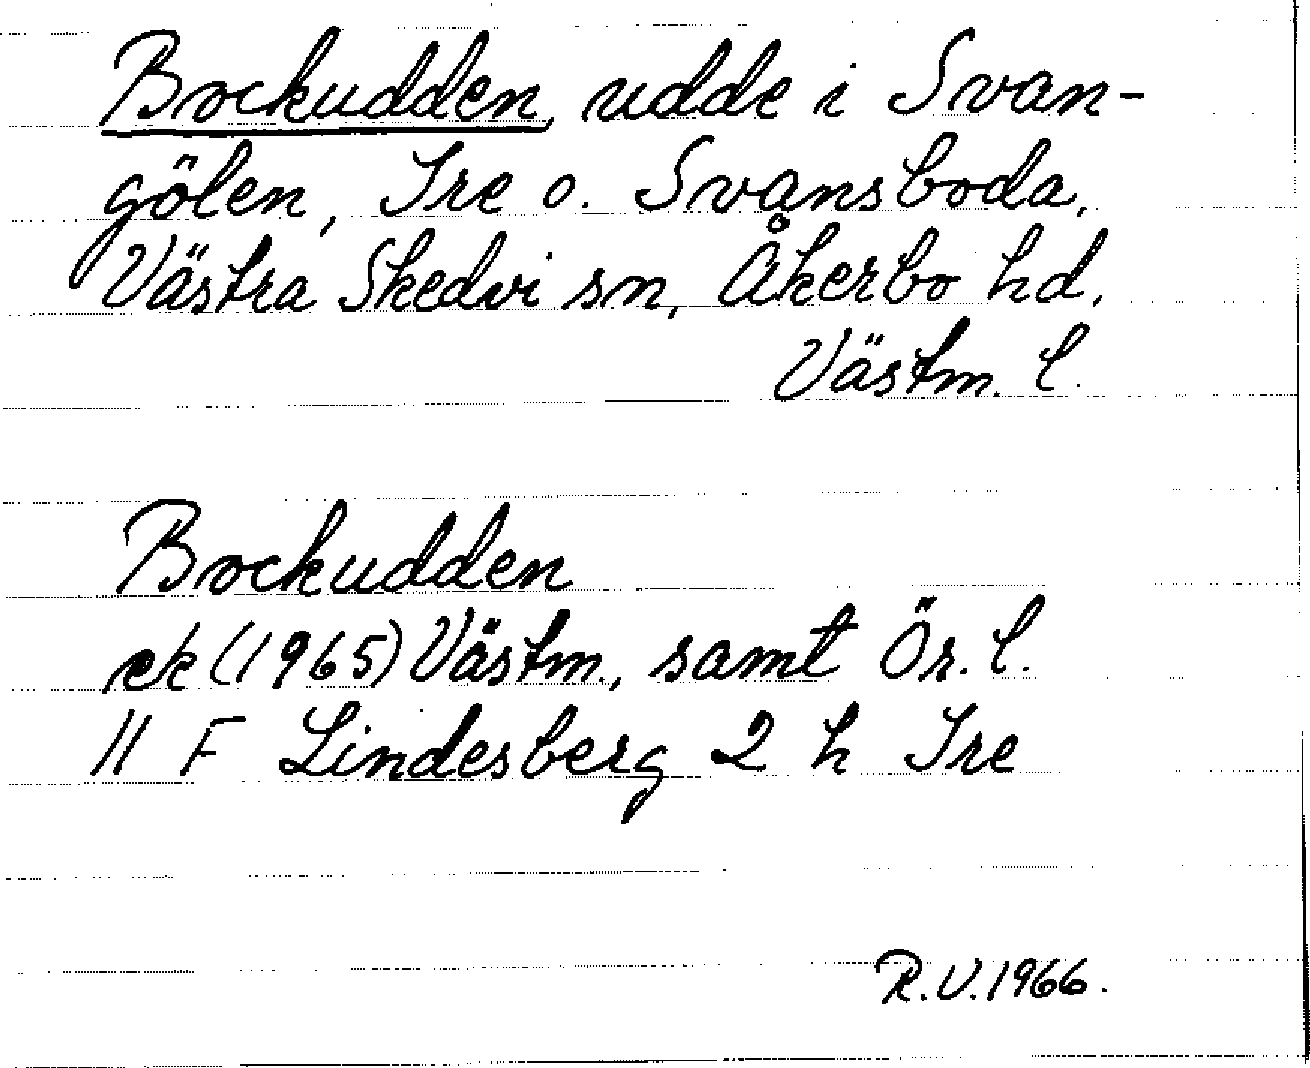 Bockudden, udde i Svan-
gölen, Tre o. Svansboda,
Västra Skedvi sn, Åkerbo hd,
Västm. l.
Bockudden
ek (1965) Västm., samt Ör. l.
11 F Lindesberg 2 h Tre
R.V.1966.